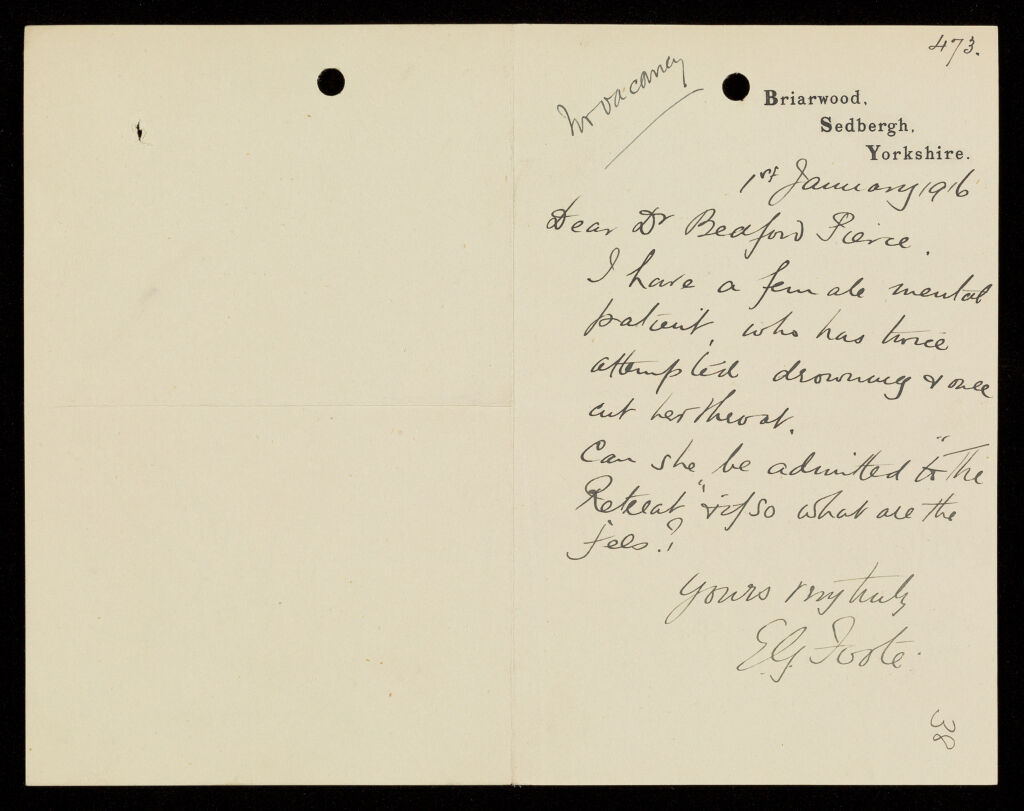 473.
No vacancy
Briarwood,
Sedbergh,
Yorkshire.
1st January 1916
Dear Dr Bedford Pierce.
I have a female mental
patient, who has twice
attempted drowning & once
cut her throat.
Can she be admitted to "The
Retreat" & if so what are the
fees.?
Yours very truly
E.G. Foote.
38